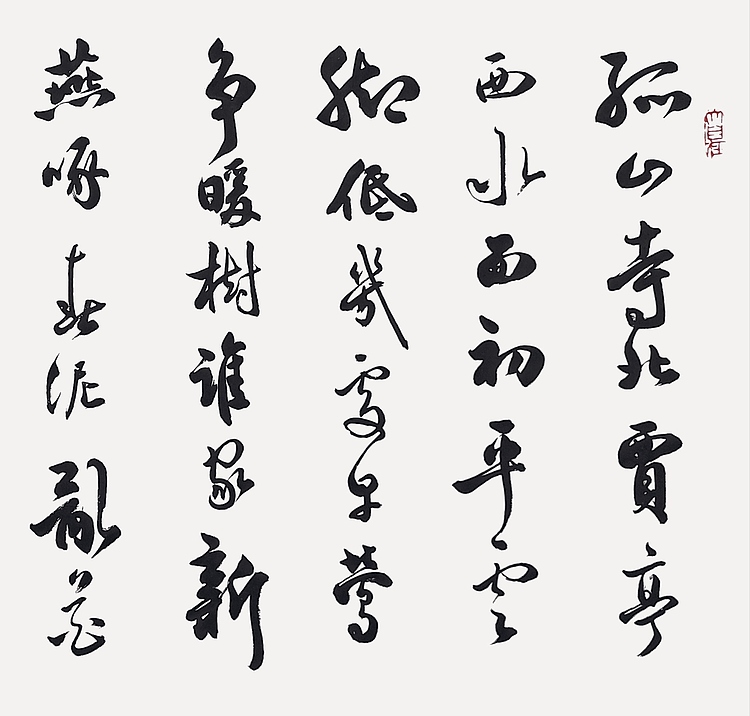 孤山寺北賈亭
西水面初平雲
脚低幾處早鶯
争暖樹誰家新
燕啄春泥亂花